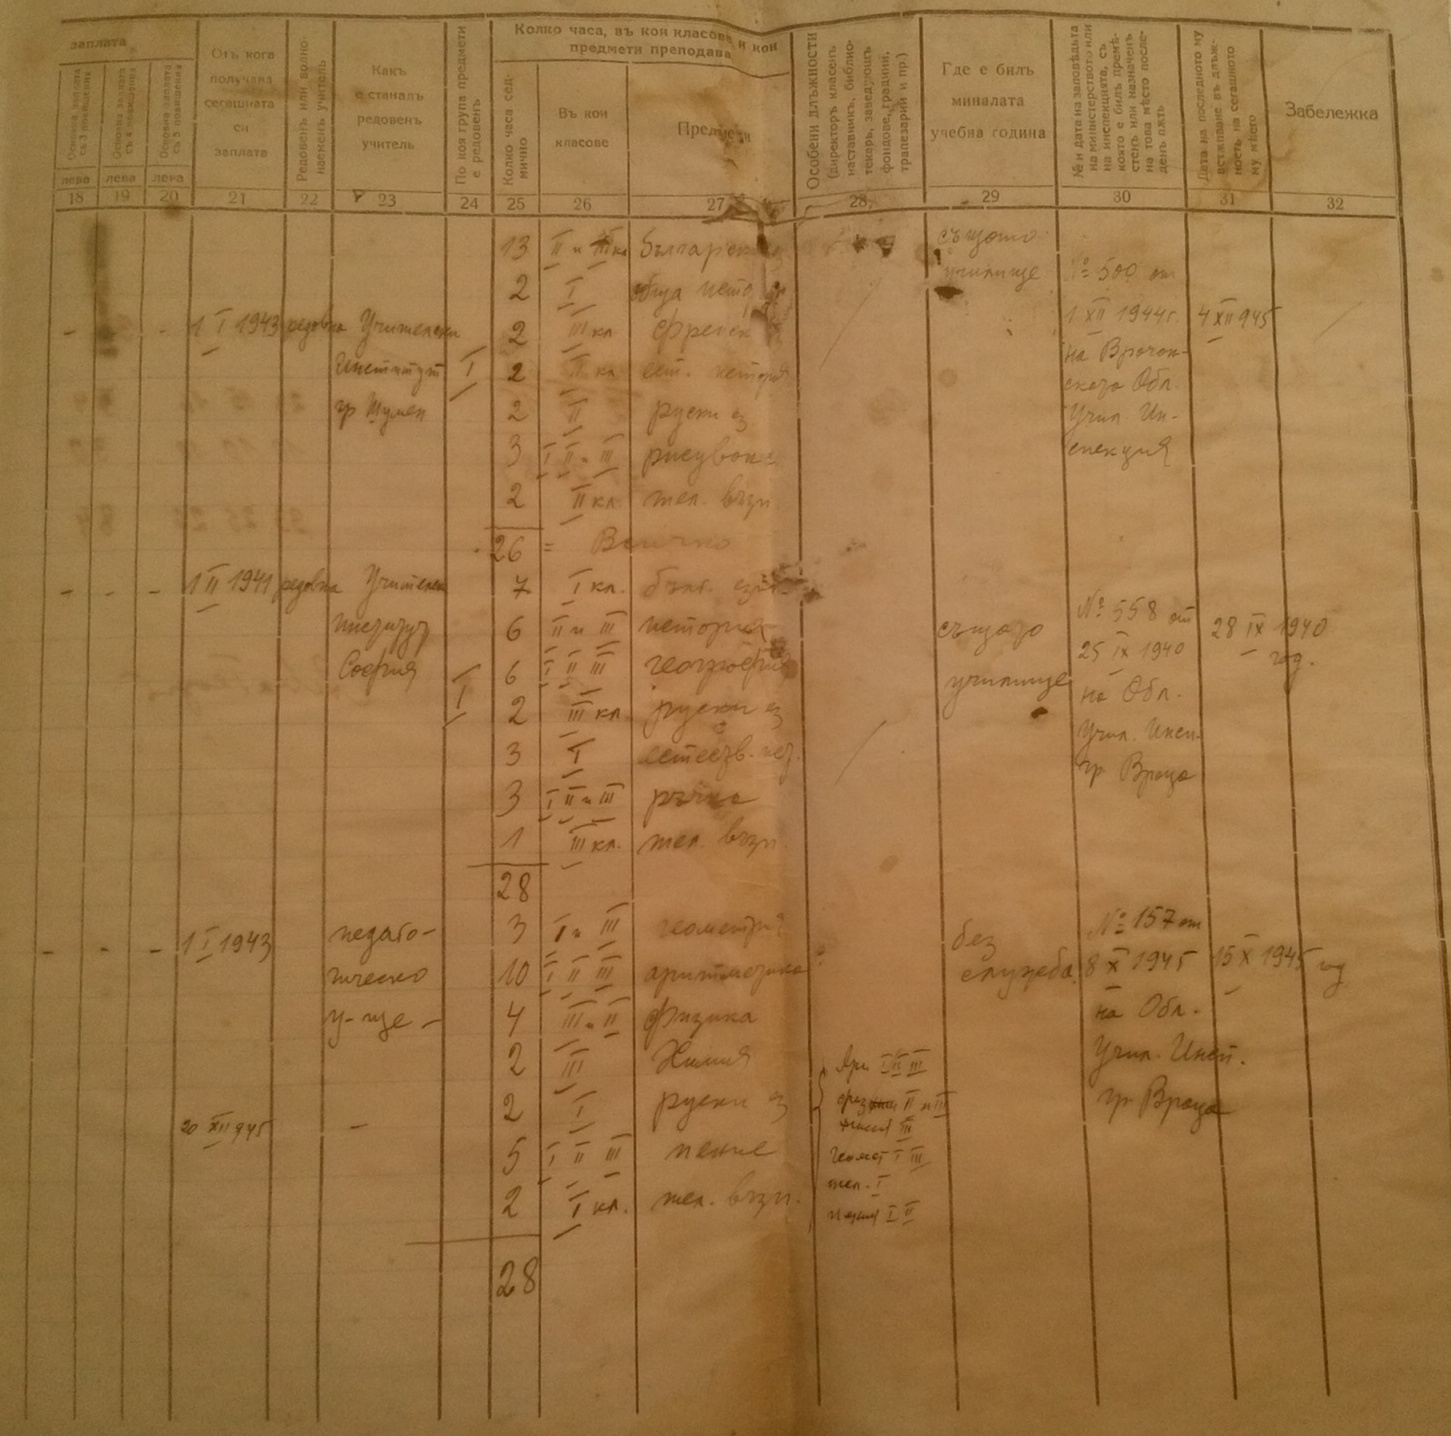 заплата
Основна заплата съ 3 повишения
Основна заплата съ 4 повишения
Основна заплата съ 5 повишения
лева
лева
лева
Отъ кога
получава
сегашната
си
заплата
Редовенъ или волно-
наеменъ учитель
Какъ
е станалъ
редовенъ
учитель
По коя група предмети
е редовенъ
Колко часа, въ кои класове и кои
предмети преподава
Колко часа сед-
мично
Въ кои
класове
Предмети
Особени длъжности
(директоръ класенъ
наставникъ, библио-
текарь, завеждащъ
фондове, градини,
трапезарии и пр.)
Где е билъ
миналата
учебна година
№ и дата на заповѣдьта
на министерството или
на инспекцията, съ
която е билъ премѣ-
стенъ или назначенъ
на това мѣсто после-
денъ пжть
Дата на последното му
встжпване въ длъж-
ность на сегашното
му мѣсто
Забележка
18 19 20 21 22 23 24 25 26 27 28 29 30 31 32
13 II и III кл. Български
2 I обща исто
- - - 1 I 1943 редовна Учителски
институт
гр Шумен
I
2 III кл. френск
2 II кл. ест. история
2 II руски ез
3 I II и III рисуван
2 II кл. тел. възп
26 = Всичко
същото
училище
№ 500 от
1 XII 1944 г.
на Врачан-
ската Обл.
Учил. Ин-
спекция
4 XII 945
- - - 1 II 1941 редовна Учителски
институт
София
I
7 I кл. бълг. език
6 II и III история
6 I II III география
2 III кл. руски ез
3 I естеств. ист.
3 I II и III ръчна
1 III кл. тел. възп.
28
същото
училище
№ 558 от
25 IX 1940
на Обл.
Учил. Инсп.
гр Враца
28 IX 1940
год.
- - - 1 I 1943
педаго-
гическо
у-ще -
3 I и III геометрия
10 I II III аритметика
4 III и II физика
2 III Химия
2 I руски ез
5 I II III пение
2 I кл. тел. възп.
28
20 XII 945 -
Ари I II III
физ II и III
химия III
геомет I III
тел. I
I II
без
служба
№ 157 от
8 X 1945
на Обл.
Учил. Инсп.
гр Враца
15 X 1945 год